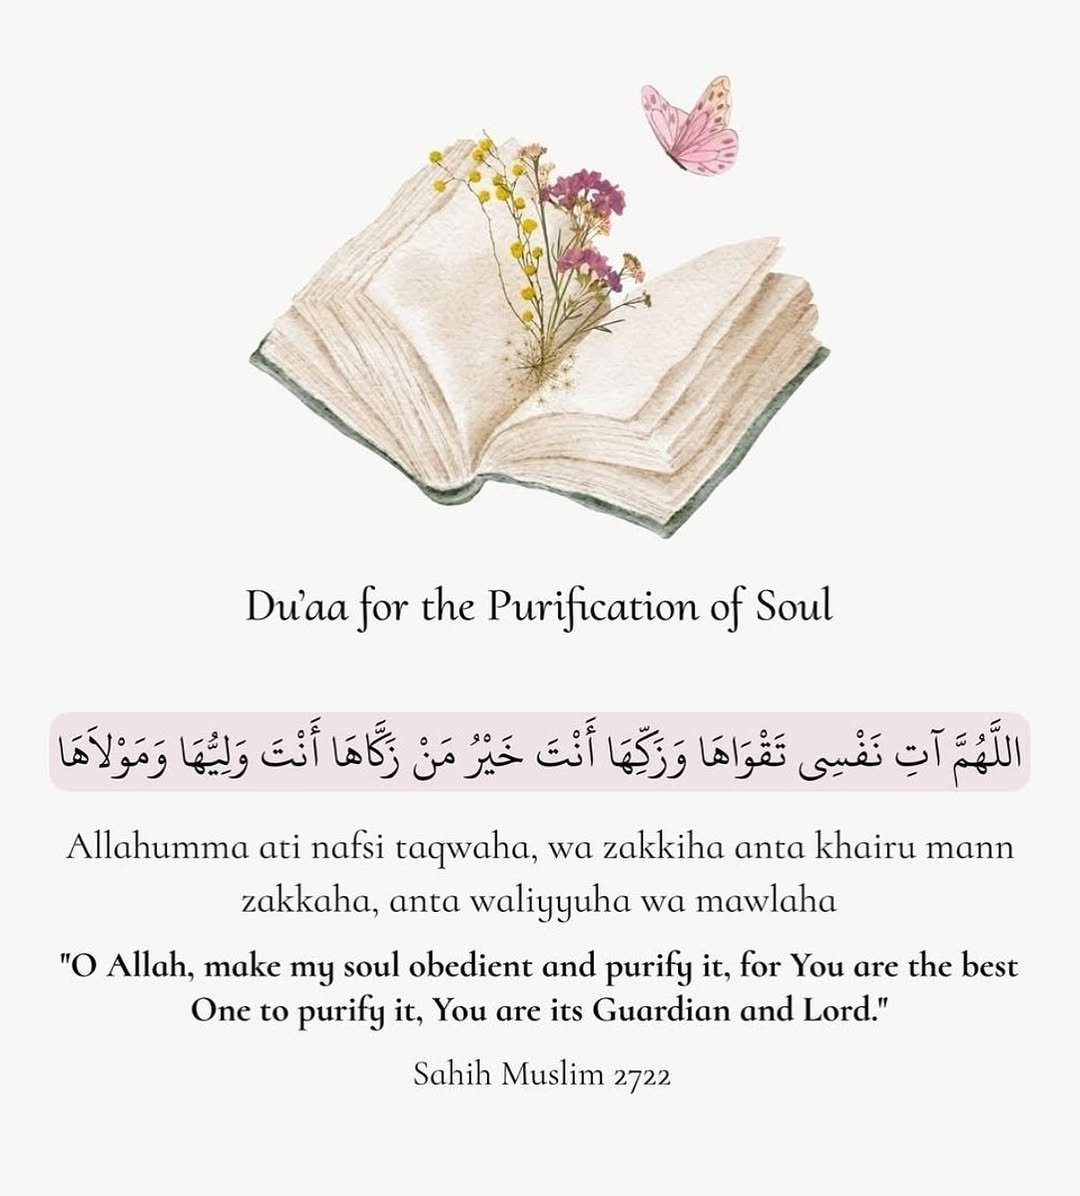 Du’aa for the Purification of Soul
اللَّهُمَّ آتِ نَفْسِى تَقْوَاهَا وَزَكِّهَا أَنْتَ خَيْرُ مَنْ زَكَّاهَا أَنْتَ وَلِيُّهَا وَمَوْلاَهَا
Allahumma ati nafsi taqwaha, wa zakkiha anta khairu mann
zakkaha, anta waliyyuha wa mawlaha
"O Allah, make my soul obedient and purify it, for You are the best
One to purify it, You are its Guardian and Lord."
Sahih Muslim 2722